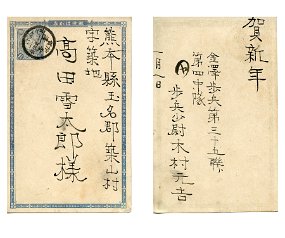 熊本縣玉名郡築山村
字築地
高田雪太郎様
賀新年
金澤歩兵第三十五聯
第四中隊
歩兵少尉木村元吉
一月一日